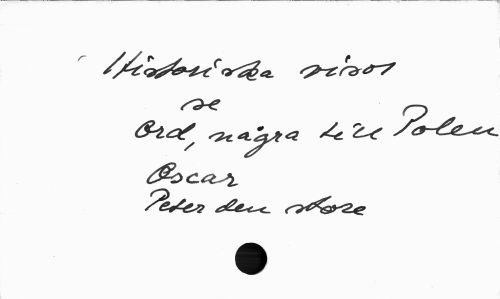 Historiska visor
se
Ord, några till Polen
Oscar
Peter den store